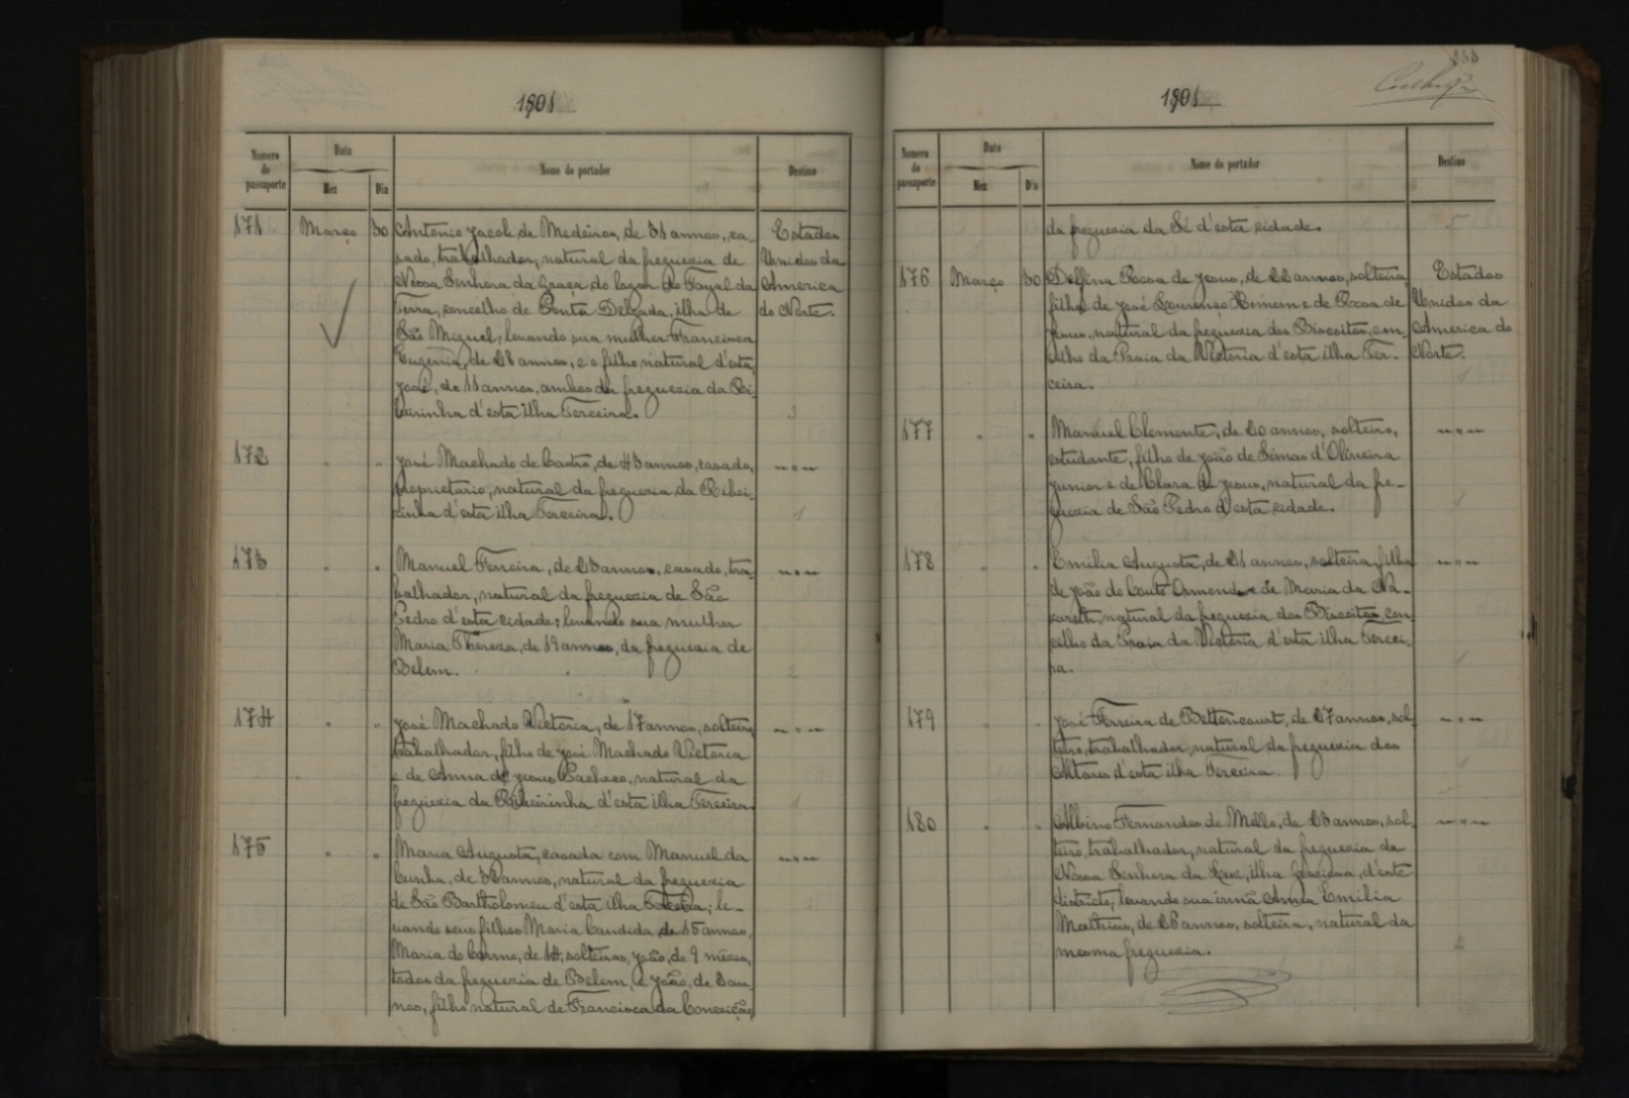 1901
Numero do passaporte
Data
Mez
Dia
Nome do portador
Destino
171 Março 30 Antonio Jacob de Medeiros, de 31 annos, ca- Estados
sado, trabalhador, natural da freguezia de Unidos da
Nossa Senhora da Graça do logar do Fayal da America
Terra, concelho de Ponta Delgada, ilha de do Norte.
São Miguel; levando sua mulher Francisca
Eugenia, de 28 annos, e o filho natural d'esta,
José, de 11 annos, ambos da freguezia da Ri-
beirinha d'esta ilha Terceira. 3
172 " " José Machado de Castro, de 43 annos, casado, " " "
proprietario, natural da freguezia da Ribei-
rinha d'esta ilha Terceira. 1
173 " " Manuel Ferreira, de 23 annos, casado, tra- " " "
balhador, natural da freguezia de São
Pedro d'esta cidade; levando sua mulher
Maria Thereza, de 19 annos, da freguezia de
Belem. 2
174 " " José Machado Victoria, de 17 annos, solteiro, " " "
trabalhador, filho de José Machado Victoria
e de Anna de Jesus Pacheco, natural da
freguezia da Ribeirinha d'esta ilha Terceira. 1
175 " " Maria Augusta, casada com Manuel da " " "
Cunha, de 32 annos, natural da freguezia
de São Bartholomeu d'esta ilha Terceira; le-
vando seus filhos Maria Candida, de 15 annos,
Maria do Carmo, de 14, solteiras, João, de 9 mezes,
todos da freguezia de Belem, e João, de 2 an-
nos, filho natural de Francisca da Conceição,
1901
Numero do passaporte
Data
Mez
Dia
Nome do portador
Destino
da freguezia da Sé d'esta cidade. 5
176 Março 30 Delfina Rosa de Jesus, de 22 annos, solteira, Estados
filha de José Lourenço Homem e de Rosa de Unidos da
Jesus, natural da freguezia dos Biscoitos, con- America do
celho da Praia da Victoria d'esta ilha Ter- Norte.
ceira. 1
177 " " Manuel Clemente, de 20 annos, solteiro, " " "
estudante, filho de João de Simas d'Oliveira
Junior e de Clara de Jesus, natural da fre-
guezia de São Pedro d'esta cidade. 1
178 " " Emilia Augusta, de 21 annos, solteira, filha " " "
de João do Couto Ormonde e de Maria da Na-
zareth, natural da freguezia dos Biscoitos, con-
celho da Praia da Victoria d'esta ilha Tercei-
ra. 1
179 " " José Ferreira de Bettencourt, de 27 annos, sol- " " "
teiro, trabalhador, natural da freguezia dos
Altares d'esta ilha Terceira. 1
180 " " Albino Fernandes de Mello, de 23 annos, sol- " " "
teiro, trabalhador, natural da freguezia de
Nossa Senhora da Luz, ilha Graciosa, d'este
districto; levando sua irmã Anna Emilia
de 26 annos, solteira, natural da
mesma freguezia. 2